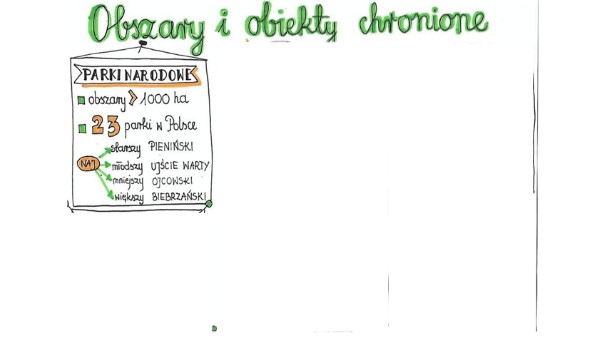 Obszary i obiekty chronione
PARKI NARODOWE
obszary > 1000 ha
23 parki w Polsce
NAJ
starszy PIENIŃSKI
młodszy UJŚCIE WARTY
mniejszy OJCOWSKI
większy BIEBRZAŃSKI